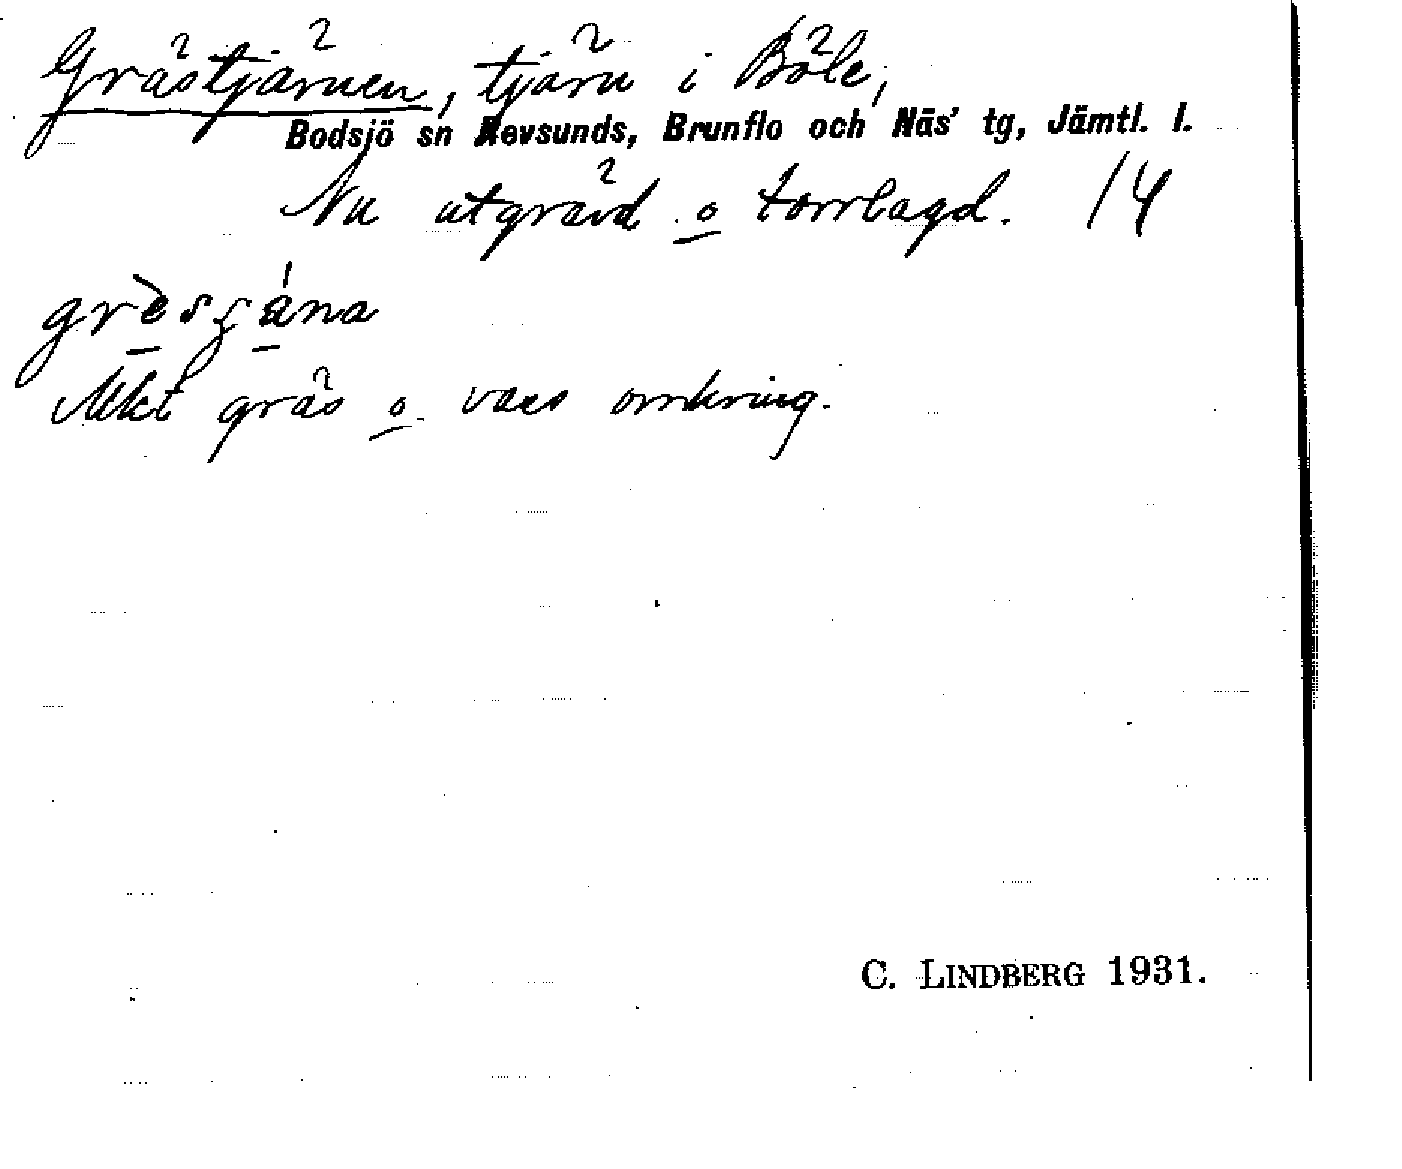 Grästjärnen, tjärn i Böle,
Bodsjö sn Revsunds, Brunflo och Näs' tg, Jämtl. l.
Nu utgrävd o torrlagd. 14
Mkt gräs o vass omkring.
C. LINDBERG 1931.